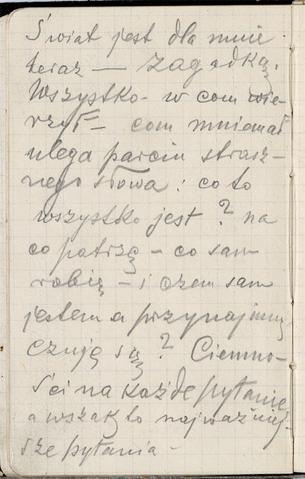 Świat jest dla mnie
teraz — zagadką.
Wszystko - w com wie-
rzył - com mniemał
ulega parciu strasz-
nego słowa: co to
wszystko jest? na
co patrzę - co sam
robię - i czem sam
jestem a przynajmn
czuję się? Ciemno-
ści na każde pytanie
a wszak to najważniej-
sze pytania -